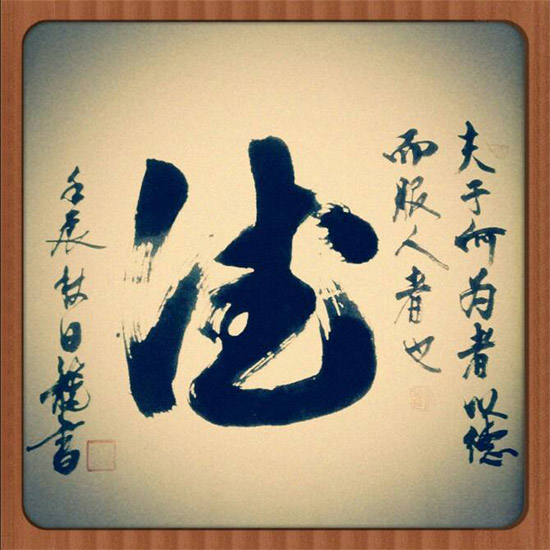 夫于何为者以德
而服人者也
德
壬辰秋日龍書